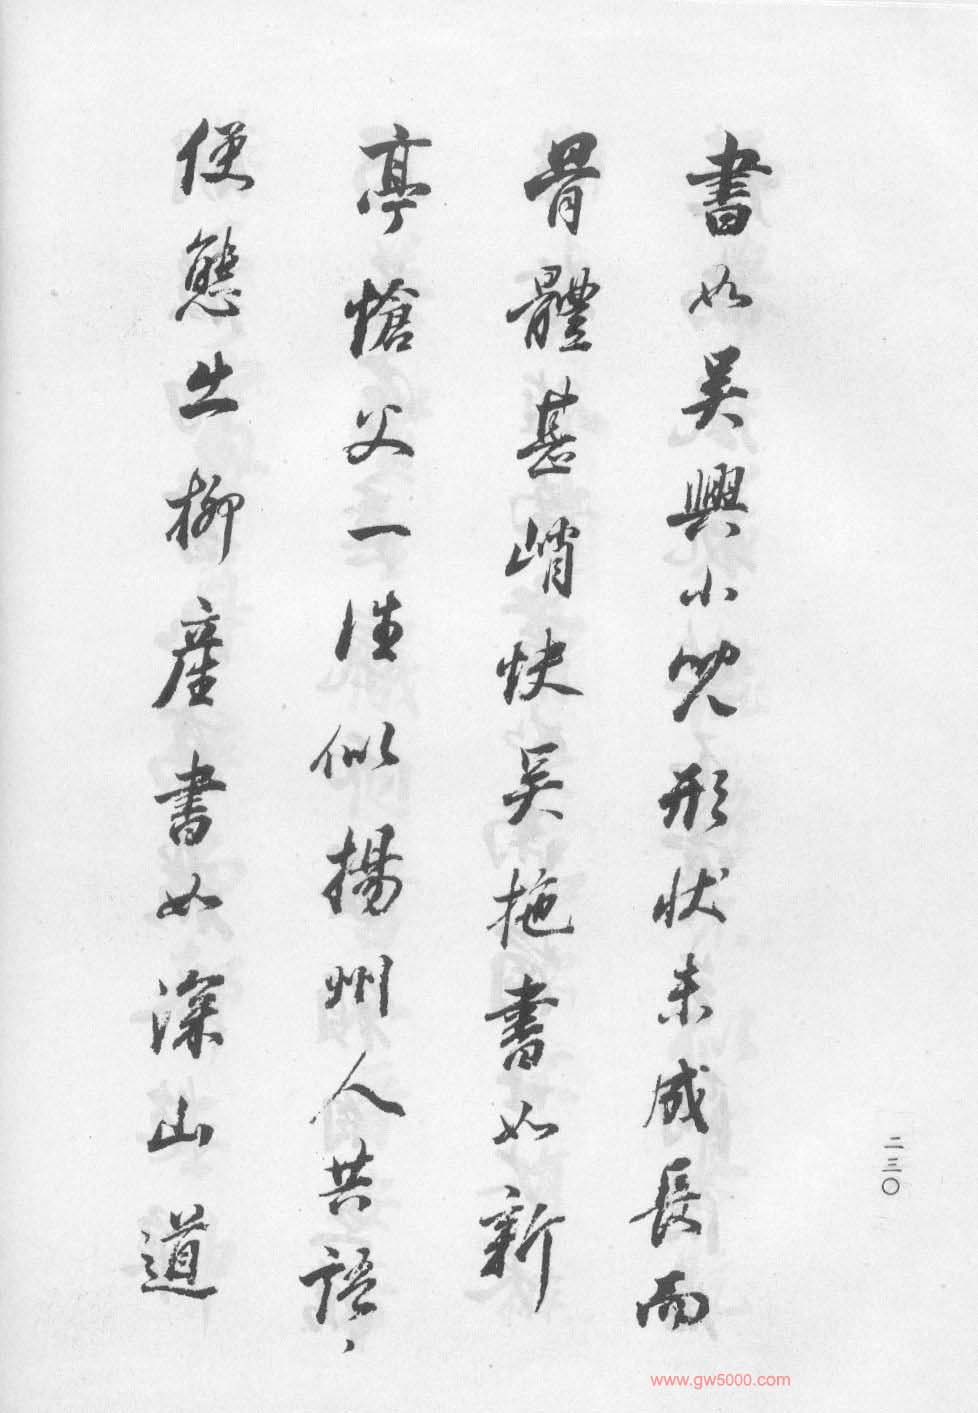 書如吳興小兒形狀未成長而
骨體甚峭快吳拖書如新
亭愴父一往似揚州人共語
便態出柳產書如深山道
二三〇
www.gw5000.com